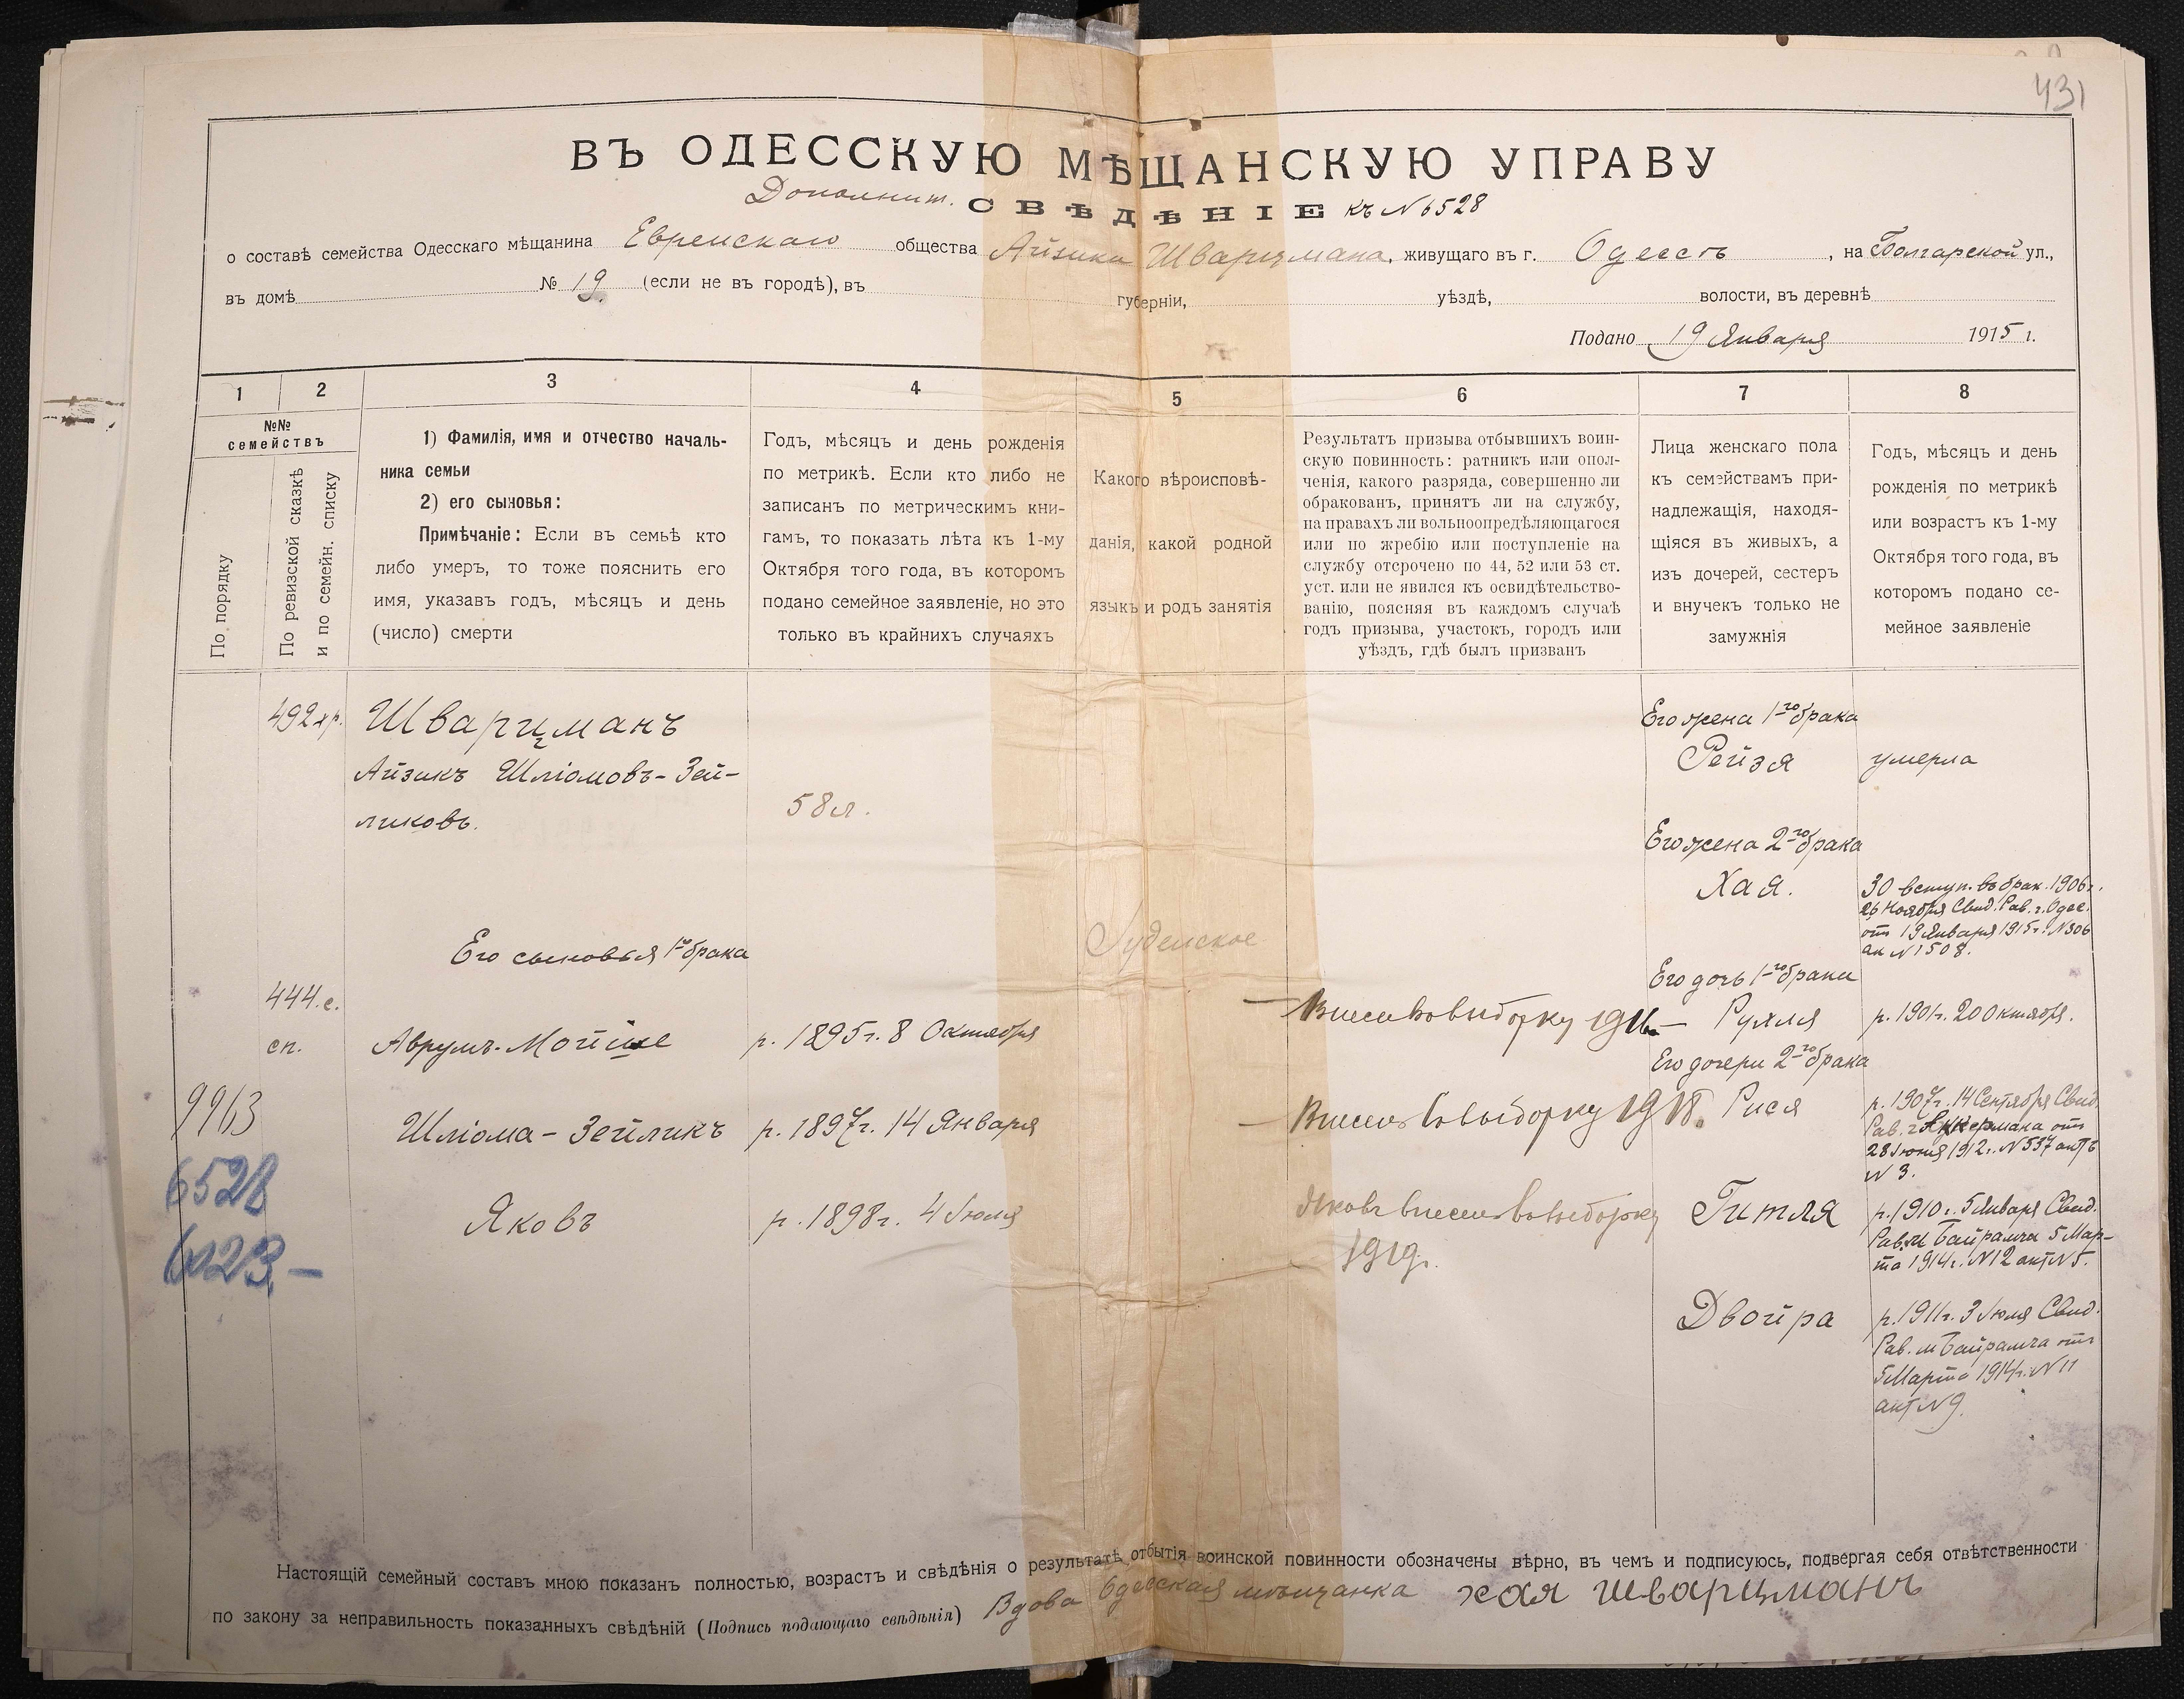 431
ВЪ ОДЕССКУЮ МѢЩАНСКУЮ УПРАВУ
Дополнит. СВѢДѢНІЕ къ № 6528
о составѣ семейства Одесскаго мѣщанина Еврейскаго общества Айзика Шварцмана, живущаго въ г. Одессѣ, на Болгарской ул.,
въ домѣ № 19. (если не въ городѣ), въ губерніи, уѣздѣ, волости, въ деревнѣ
Подано 19 Января 1915 г.
1 2 3 4 5 6 7 8
№№
семействъ
По порядку
По ревизской сказкѣ
и по семейн. списку
1) Фамилія, имя и отчество началь-
ника семьи
2) его сыновья:
Примѣчаніе: Если въ семьѣ кто
либо умеръ, то тоже пояснить его
имя, указавъ годъ, мѣсяцъ и день
(число) смерти
Годъ, мѣсяцъ и день рожденія
по метрикѣ. Если кто либо не
записанъ по метрическимъ кни-
гамъ, то показать лѣта къ 1-му
Октября того года, въ которомъ
подано семейное заявленіе, но это
только въ крайнихъ случаяхъ
Какого вѣроисповѣ-
данія, какой родной
языкъ и родъ занятія
Результатъ призыва отбывшихъ воин-
скую повинность: ратникъ или опол-
ченія, какого разряда, совершенно ли
обракованъ, принятъ ли на службу,
на правахъ ли вольноопредѣляющагося
или по жребію или поступленіе на
службу отсрочено по 44, 52 или 53 ст.
уст. или не явился къ освидѣтельство-
ванію, поясняя въ каждомъ случаѣ
годъ призыва, участокъ, городъ или
уѣздъ, гдѣ былъ призванъ
Лица женскаго пола
къ семействамъ при-
надлежащія, находя-
щіяся въ живыхъ, а
изъ дочерей, сестеръ
и внучекъ только не
замужнія
Годъ, мѣсяцъ и день
рожденія по метрикѣ
или возрастъ къ 1-му
Октября того года, въ
которомъ подано се-
мейное заявленіе
492
Шварцманъ
Айзикъ Шліомовъ-Зей-
ликовъ.
58 л.
Его жена 1-го брака
Рейзя умерла
Его жена 2-го брака
Хая.
30 вступ. въ брак. 1906 г.
26 Ноября Свид. Рав. г. Одес.
отъ 19 Января 1915 г. № 306
ак № 1508.
Іудейское
Его сыновья 1-го брака
Его дочь 1-го брака
444. с.
сп.
Аврумъ-Мойше р. 1895 г. 8 Октября
— Внесен в выборку 1916 —
Рухля р. 1901 г. 20 Октября.
Его дочери 2-го брака
9963
Шліома-Зейликъ р. 1897 г. 14 Января
— Внесен в выборку 1918.
Рися
р. 1907 г. 14 Сентября Свид.
Рав. г. Аккермана отъ
28 Іюня 1912 г. № 537 актъ
№ 3.
6528
6123. —
Яковъ р. 1898 г. 4 Іюля
Яковъ внесен в выборку
1919 г.
Гитля
р. 1910 г. 5 Января Свид.
Рав. м. Байрамча 5 Мар-
та 1914 г. № 12 акт № 5.
Двойра
р. 1911 г. 3 Іюля Свид.
Рав. м Байрамча отъ
5 Марта 1914 г. № 11
акт № 9.
Настоящій семейный составъ мною показанъ полностью, возрастъ и свѣдѣнія о результатѣ отбытія воинской повинности обозначены вѣрно, въ чемъ и подписуюсь, подвергая себя отвѣтственности
по закону за неправильность показанныхъ свѣдѣній (Подпись подающаго свѣдѣнія) Вдова Одесская мѣщанка хая шварцманъ